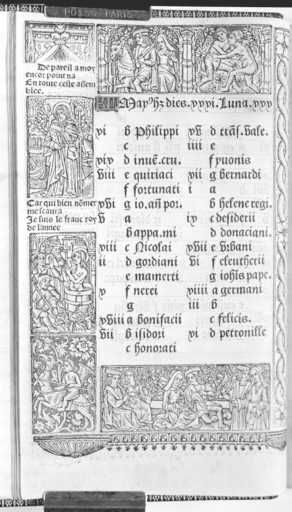 De pareil a moy
encor point na
En toute ceste assem
blee.
Car qui bien nõmer
me scaura
Je suis le franc roy
de lannee
May hz dies. xxxi. Luna. xxx
xi b Philippi
c
xix d inuẽ. cru.
viii e quiriaci
f fortunati
xvi g io. añ por.
v a
b appa. mi
xiii c Nicolai
ii d gordiani
e mamerti
x f nerei
g
xviii a bonifacii
vii b isidori
c honorati
xv d trãs. vale.
iiii e
f yuonis
xii g bernardi
i a
b helene regi.
ix c desiderii
d donaciani.
xvii e Vrbani
vi f eleutherii
g iohis pape.
xiiii a germani
iii b
c felicis.
xi d petronille